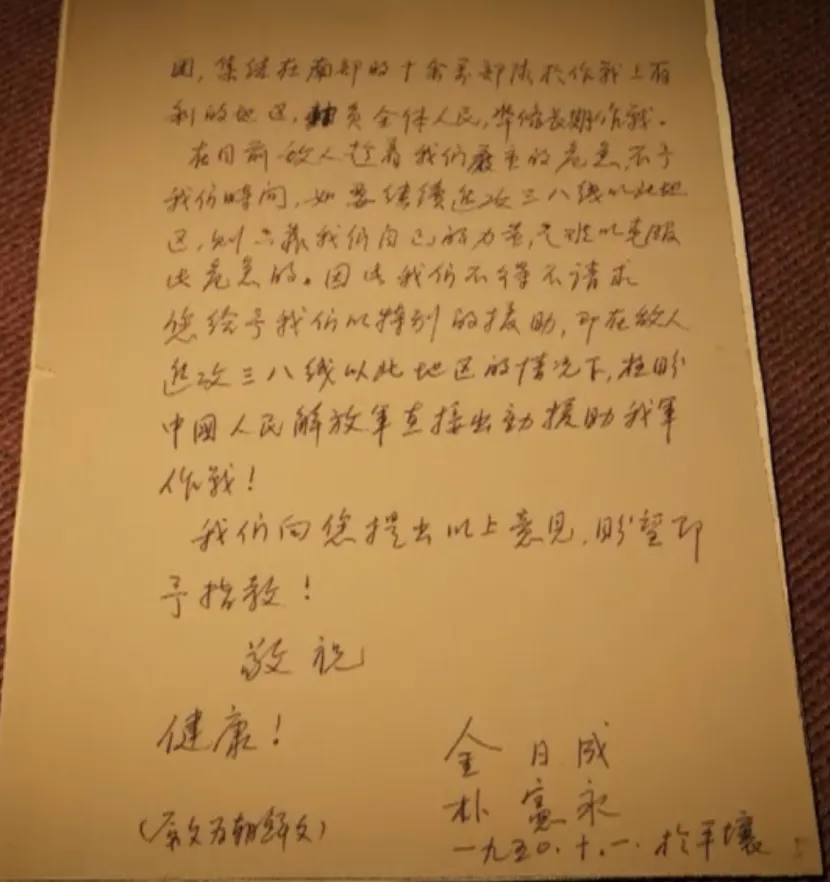 团，集结在南部的十余万部队于作战上有
利的地区，动员全体人民，准备长期作战。
在目前敌人趁着我们严重的危急，不予
我们时间，如要继续进攻三八线以北地
区，则只靠我们自己的力量，是难以克服
此危急的。因此我们不得不请求
您给予我们以特别的援助，即在敌人
进攻三八线以北地区的情况下，极盼
中國人民解放軍直接出動援助我軍
作戰！
我们向您提出以上意见，盼望即
予指教！
敬祝
健康！
金日成
朴憲永
一九五〇.十.一.於平壤
（原文为朝鲜文）